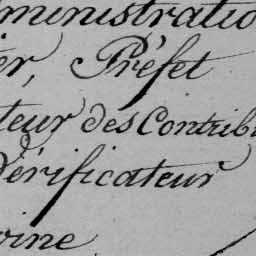 ministratio
er, Préfet
teur des Contrib
Vérificateur
rine